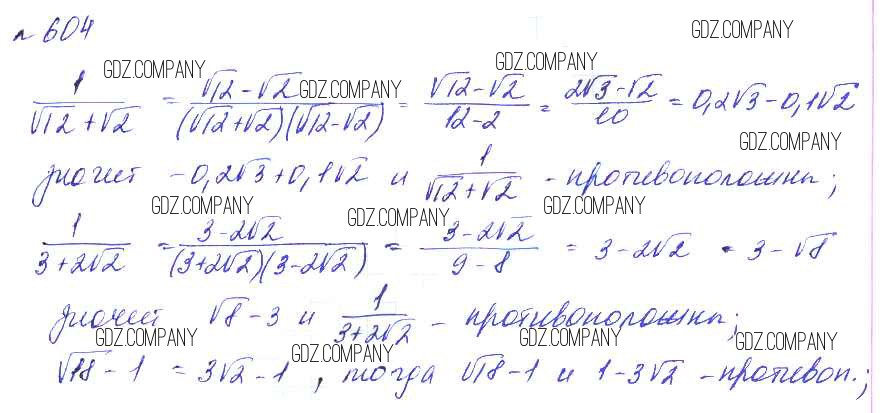 № 604 GDZ.COMPANY
GDZ.COMPANY GDZ.COMPANY GDZ.COMPANY
1/(√12+√2) = (√12-√2)/((√12+√2)(√12-√2)) = (√12-√2)/(12-2) = (2√3-√2)/10 = 0,2√3-0,1√2
GDZ.COMPANY
значит -0,2√3+0,1√2 и 1/(√12+√2) - противоположны;
GDZ.COMPANY GDZ.COMPANY GDZ.COMPANY
1/(3+2√2) = (3-2√2)/((3+2√2)(3-2√2)) = (3-2√2)/(9-8) = 3-2√2 = 3-√8
значит √8-3 и 1/(3+2√2) - противоположны;
GDZ.COMPANY GDZ.COMPANY GDZ.COMPANY GDZ.COMPANY
√18-1 = 3√2-1, тогда √18-1 и 1-3√2 - противоп.;